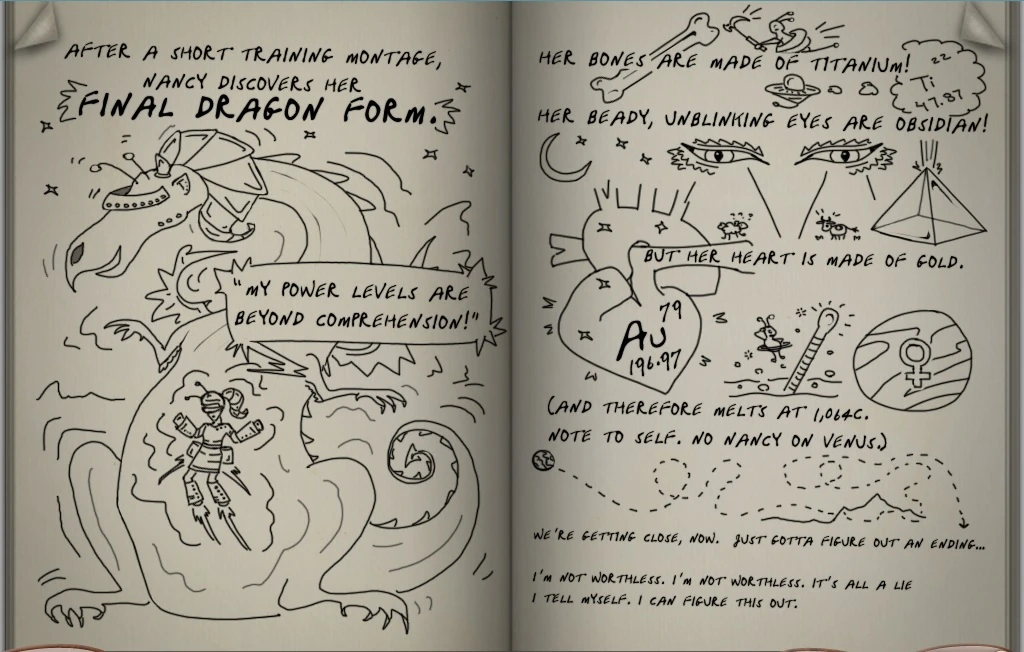 AFTER A SHORT TRAINING MONTAGE,
NANCY DISCOVERS HER
FINAL DRAGON FORM.
"MY POWER LEVELS ARE
BEYOND COMPREHENSION!"
HER BONES ARE MADE OF TITANIUM!
22
Ti
47.87
HER BEADY, UNBLINKING EYES ARE OBSIDIAN!
BUT HER HEART IS MADE OF GOLD.
79
Au
196.97
(AND THEREFORE MELTS AT 1,064C.
NOTE TO SELF. NO NANCY ON VENUS.)
WE'RE GETTING CLOSE, NOW. JUST GOTTA FIGURE OUT AN ENDING...
I'M NOT WORTHLESS. I'M NOT WORTHLESS. IT'S ALL A LIE
I TELL MYSELF. I CAN FIGURE THIS OUT.